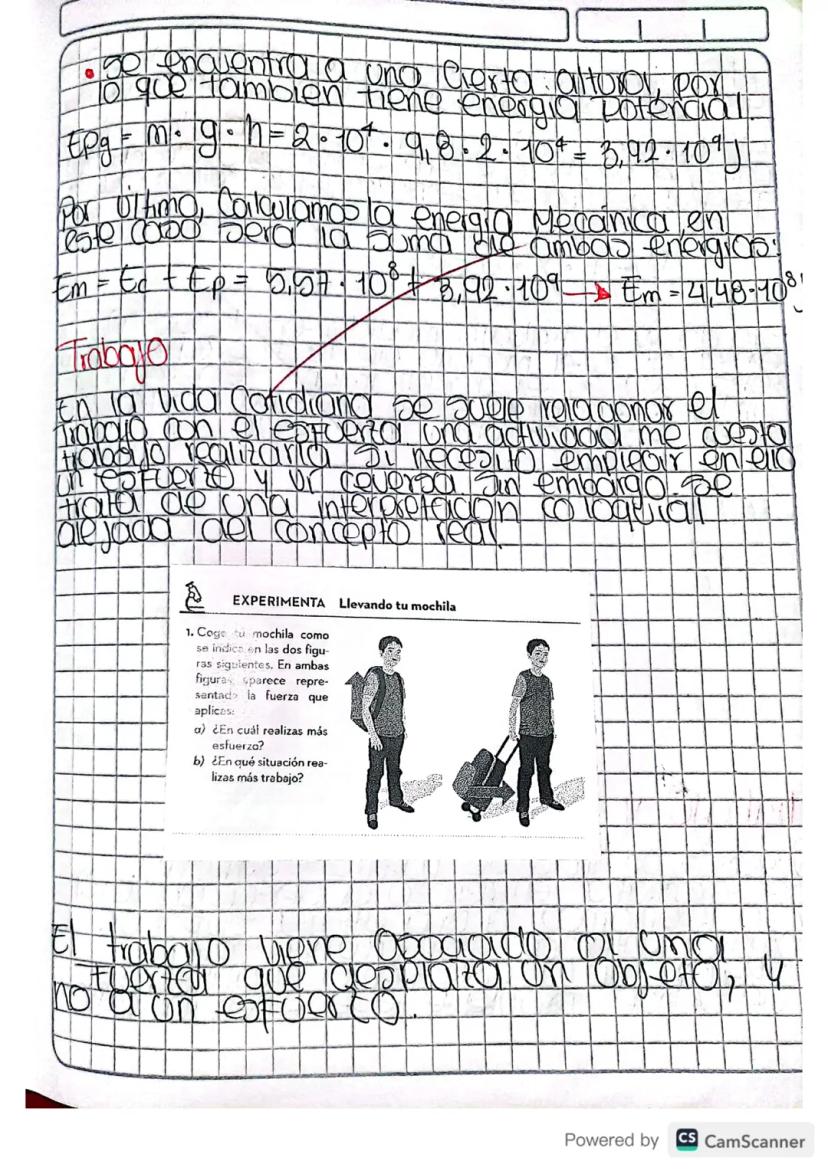 • Se encuentra a una Cierta altura, por
lo que tambien tiene energia potencial.
Epg = m · g · h = 2 · 10⁴ · 9,8 · 2 · 10⁴ = 3,92 · 10⁹ J
Por último, Calculamos la energia Mecánica, en
este caso será la suma de ambas energias:
Em = Ec + Ep = 5,57 · 10⁸ + 3,92 · 10⁹ → Em = 4,48 · 10⁸ J
Trabajo
En la vida Cotidiana se suele relacionar el
trabajo con el esfuerzo una actividad me cuesta
trabajo realizarla si necesito emplear en ello
un esfuerzo y vr ceversa sin embargo se
trata de una interpretación coloquial
alejada del concepto real
EXPERIMENTA Llevando tu mochila
1. Coge tu mochila como
se indica en las dos figu-
ras siguientes. En ambas
figuras aparece repre-
sentada la fuerza que
aplicas:
a) ¿En cuál realizas más
esfuerzo?
b) ¿En qué situación rea-
lizas más trabajo?
El trabajo viene asociado a una
fuerza que desplaza un objeto, y
no a un esfuerzo.
Powered by CS CamScanner